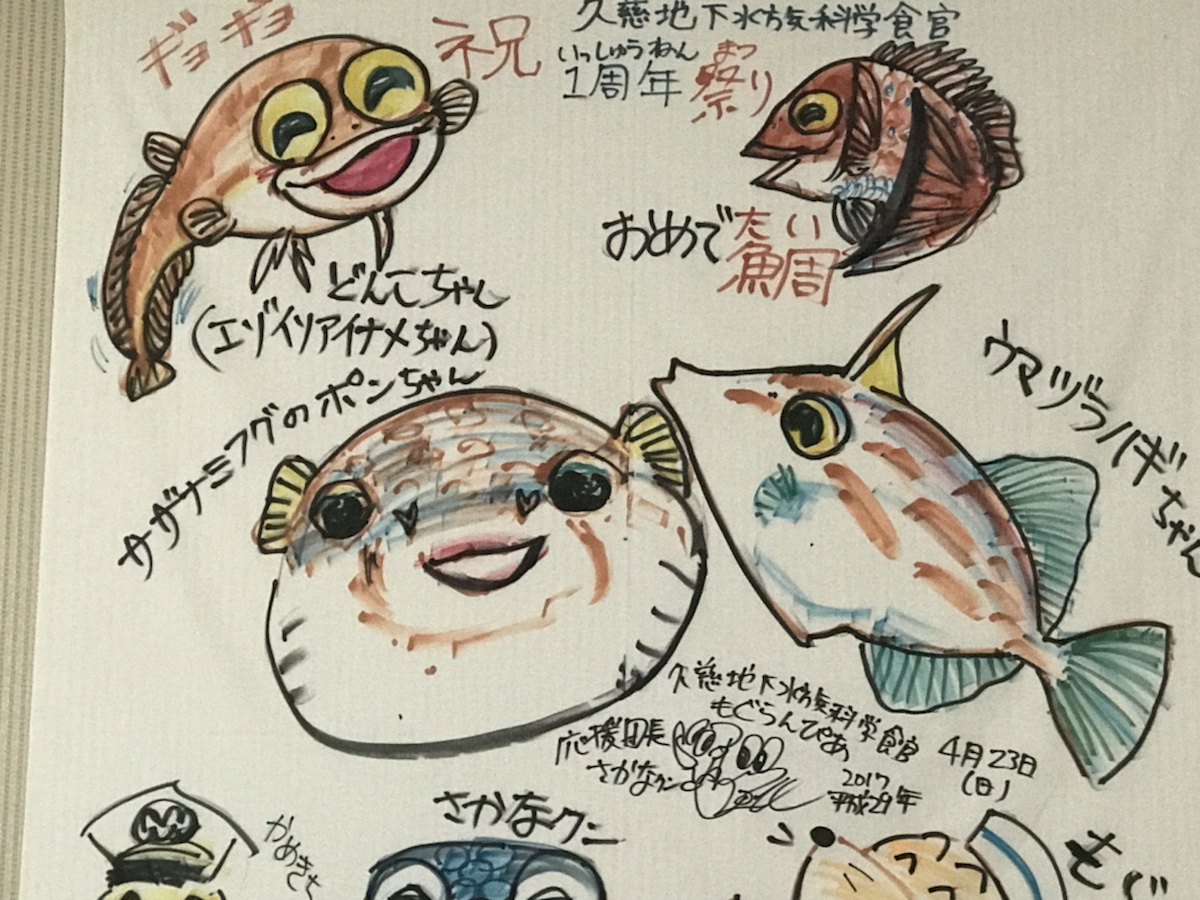 ギョギョ
祝
久慈地下水族科学館
いっしゅうねん まつ
1周年 祭り
たい
おめで鯛
どんこちゃん
(エゾイソアイナメちゃん)
サザナミフグのポンちゃん
ウマヅラハギちゃん
久慈地下水族科学館
もぐらんぴあ
応援団長
さかなクン
4月23日
(日)
2017
平成29年
かめきち
さかなクン
もぐ